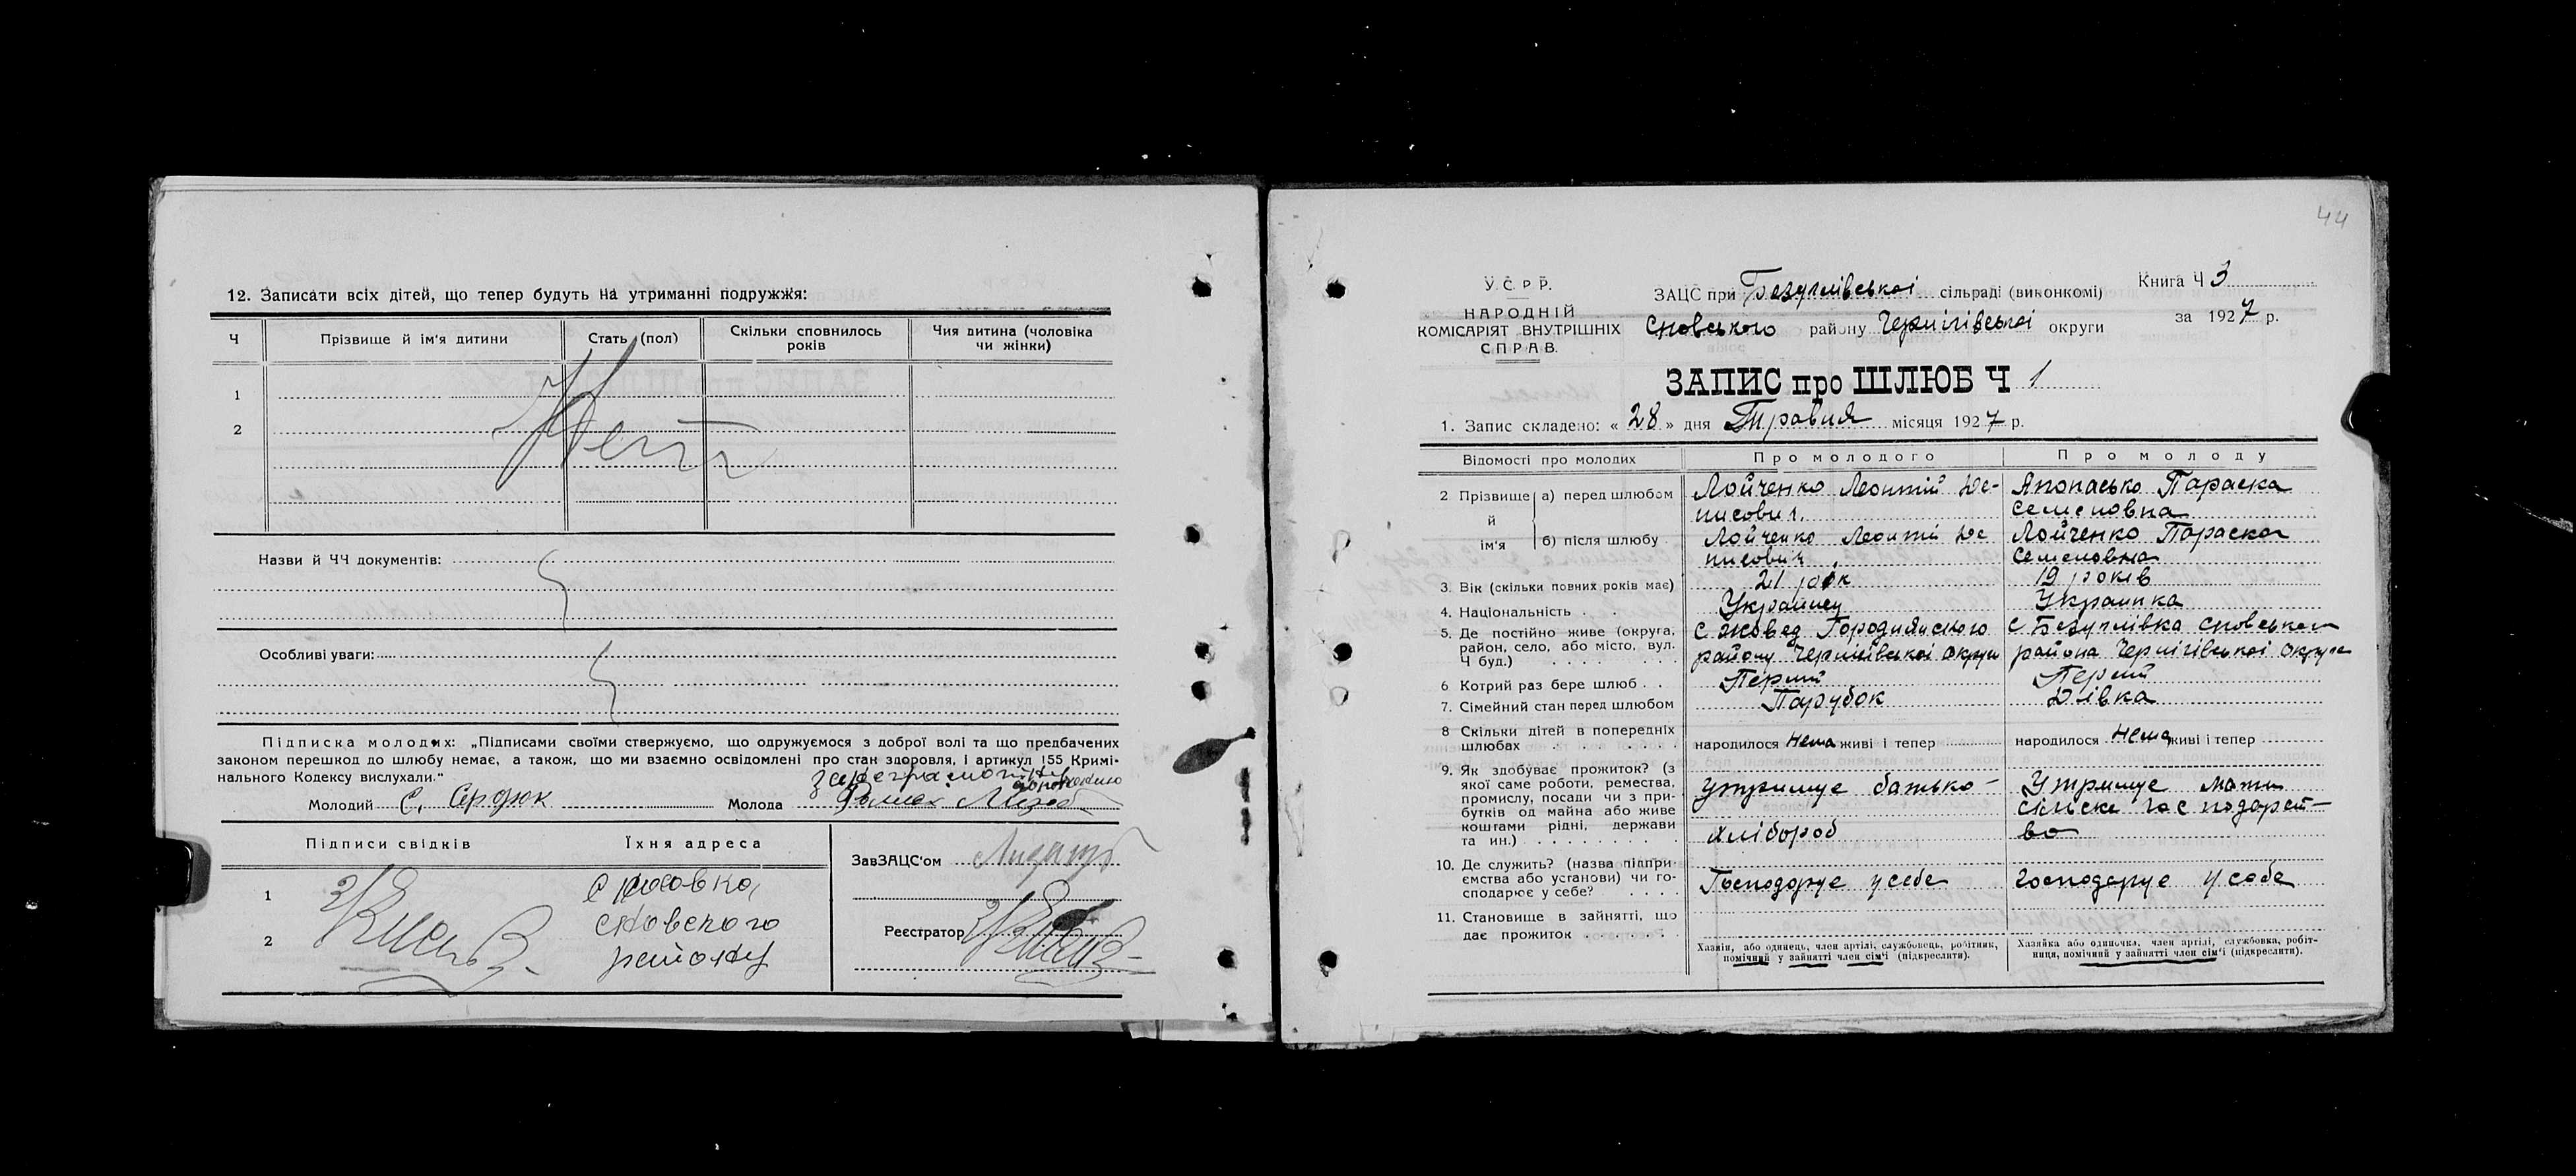 12. Записати всіх дітей, що тепер будуть на утриманні подружжя:
Ч Прізвище й ім'я дитини Стать (пол) Скільки сповнилось років Чия дитина (чоловіка чи жінки)
1
2
Нет
Назви й ЧЧ документів:
Особливі уваги:
Підписка молодих: „Підписами своїми стверджуємо, що одружуємося з доброї волі та що предбачених
законом перешкод до шлюбу немає, а також, що ми взаємно освідомлені про стан здоров'я, і артикул 155 Кримі-
нального Кодексу вислухали."
Молодий С. Сердюк Молода
Підписи свідків Їхня адреса
1
2
сновского
району
ЗавЗАЦС'ом
Реєстратор
44
У.С.Р.Р.
НАРОДНІЙ
КОМІСАРІЯТ ВНУТРІШНІХ
СПРАВ.
ЗАЦС при Безуглівської сільраді (виконкомі)
Сновського району Чернігівської округи
Книга Ч 3
за 1927 р.
ЗАПИС про ШЛЮБ Ч 1
1. Запис складено: « 28 » дня Травня місяця 1927 р.
Відомості про молодих Про молодого Про молоду
2 Прізвище й ім'я а) перед шлюбом Лойченко Леонтій Де-
нисович. Япопасько Параска
Семеновна
б) після шлюбу Лойченко Леонтій Де
нисович Лойченко Параска
Семеновна
3. Вік (скільки повних років має) 21 рок 19 років
4. Національність Українец Украинка
5. Де постійно живе (округа,
район, село, або місто, вул.
Ч буд.) с Жовед Городнянського
району Чернігівської округи с Безуглівка Сновського
района Чернігівської округи
6 Котрий раз бере шлюб Перший Перший
7. Сімейний стан перед шлюбом Парубок Дівка
8 Скільки дітей в попередніх
шлюбах народилося нема живі і тепер народилося нема живі і тепер
9. Як здобуває прожиток? (з
якої саме роботи, ремества,
промислу, посади чи з при-
бутків од майна або живе
коштами рідні, держави
та ин.) утримує батько-
хлібороб Утримує мати
сільске господарст-
во
10. Де служить? (назва підпри-
ємства або установи) чи го-
сподарює у себе? Господорує у себе господарує у себе
11. Становище в зайнятті, що
дає прожиток
Хазяїн, або одинець, член артілі, службовець, робітник,
помічний у зайнятті член сім'ї (підкреслити).
Хазяйка або одиночка, член артілі, службовка, робіт-
ниця, помічний у зайнятті член сім'ї (підкреслити).